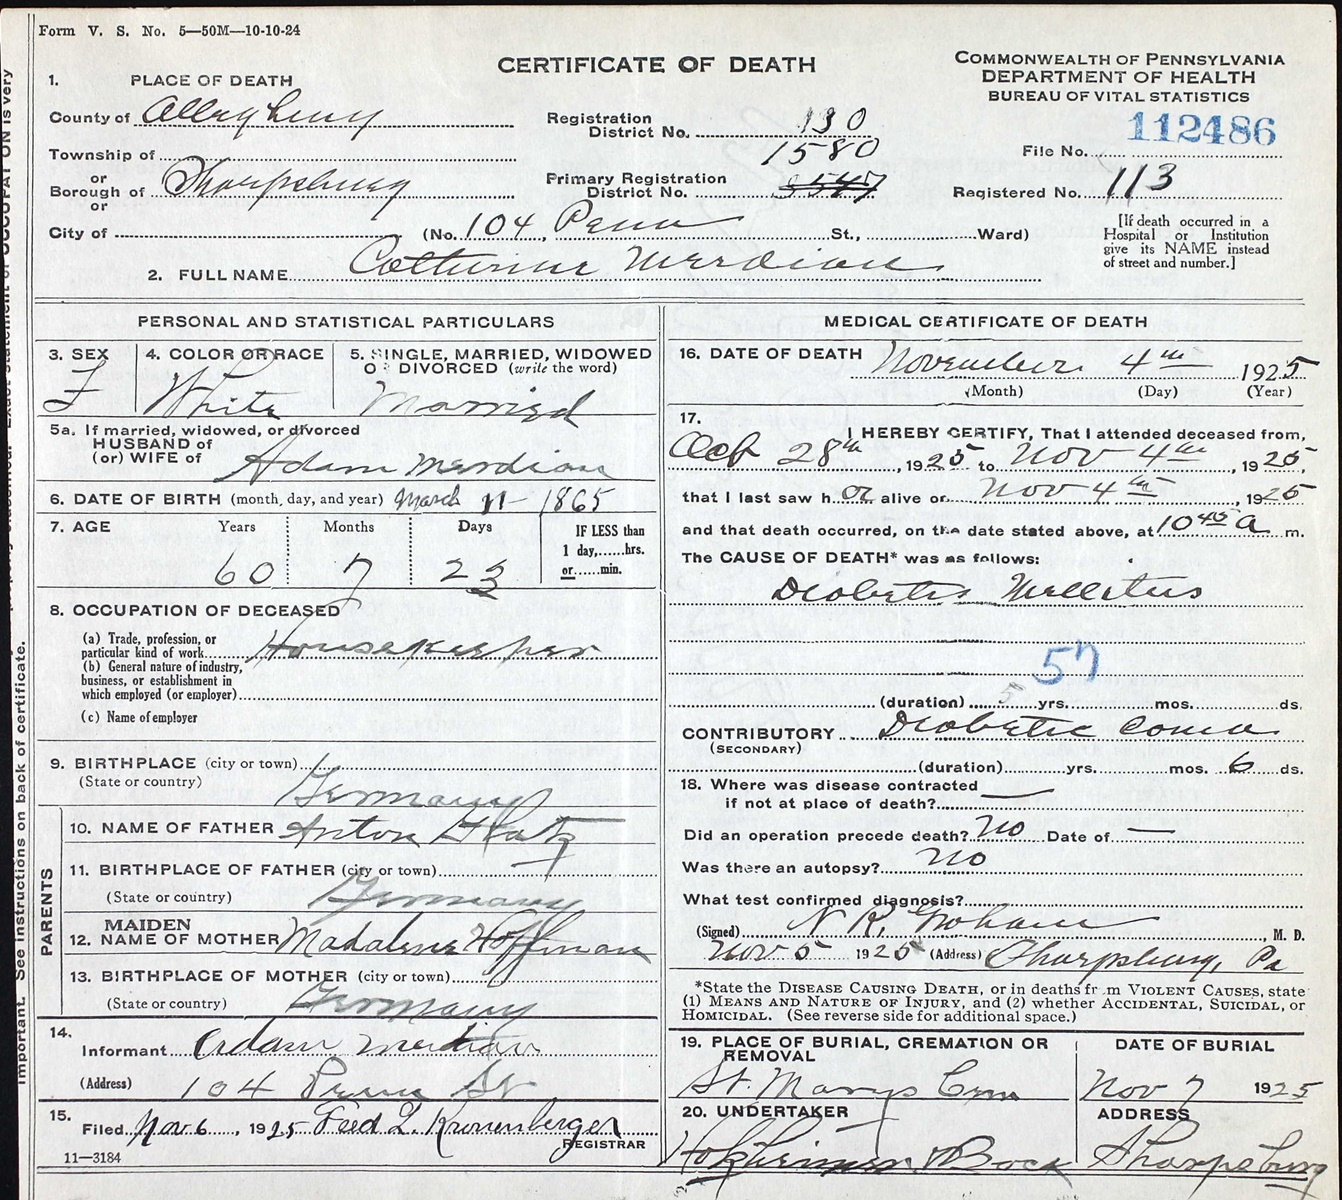 Form V. S. No. 5—50M—10-10-24
CERTIFICATE OF DEATH
COMMONWEALTH OF PENNSYLVANIA
DEPARTMENT OF HEALTH
BUREAU OF VITAL STATISTICS
1. PLACE OF DEATH
County of Allegheny
Township of
or
Borough of Sharpsburg
or
City of
Registration District No. 130
1580
Primary Registration District No. 5547
(No. 104 Penn St., Ward)
112486
File No.
Registered No. 113
[If death occurred in a
Hospital or Institution
give its NAME instead
of street and number.]
2. FULL NAME Catherine Merdian
PERSONAL AND STATISTICAL PARTICULARS
3. SEX F
4. COLOR OR RACE White
5. SINGLE, MARRIED, WIDOWED
OR DIVORCED (write the word)
Married
5a. If married, widowed, or divorced
HUSBAND of
(or) WIFE of Adam Merdian
6. DATE OF BIRTH (month, day, and year) March 11 1865
7. AGE Years Months Days
60 7 23
IF LESS than
1 day,......hrs.
or......min.
8. OCCUPATION OF DECEASED
(a) Trade, profession, or
particular kind of work Housekeeper
(b) General nature of industry,
business, or establishment in
which employed (or employer)
(c) Name of employer
9. BIRTHPLACE (city or town)
(State or country) Germany
PARENTS
10. NAME OF FATHER Anton
11. BIRTHPLACE OF FATHER (city or town)
(State or country) Germany
12. MAIDEN NAME OF MOTHER Madalena Hoffman
13. BIRTHPLACE OF MOTHER (city or town)
(State or country) Germany
14. Informant Adam Merdian
(Address) 104 Penn St
15. Filed Nov 6, 1925 Fred L. Kronenberger
REGISTRAR
11—3184
MEDICAL CERTIFICATE OF DEATH
16. DATE OF DEATH November 4th 1925
(Month) (Day) (Year)
17. I HEREBY CERTIFY, That I attended deceased from,
Oct 28th, 1925 to Nov 4th, 1925,
that I last saw her alive on Nov 4th, 1925
and that death occurred, on the date stated above, at 10 45 a m.
The CAUSE OF DEATH* was as follows:
Diabetis Mellitus
57
(duration) 5 yrs. mos. ds.
CONTRIBUTORY Diabetic Coma
(SECONDARY)
(duration) yrs. mos. 6 ds.
18. Where was disease contracted
if not at place of death? —
Did an operation precede death? No Date of —
Was there an autopsy? No
What test confirmed diagnosis?
(Signed) N. R. , M. D.
Nov 5 1925 (Address) Sharpsburg, Pa
*State the DISEASE CAUSING DEATH, or in deaths fr m VIOLENT CAUSES, state
(1) MEANS AND NATURE OF INJURY, and (2) whether ACCIDENTAL, SUICIDAL, or
HOMICIDAL. (See reverse side for additional space.)
19. PLACE OF BURIAL, CREMATION OR
REMOVAL
St. Marys Cem
DATE OF BURIAL
Nov 7 1925
20. UNDERTAKER
& Bock
ADDRESS
Sharpsburg
important. See instructions on back of certificate.
OCCUPATION is very